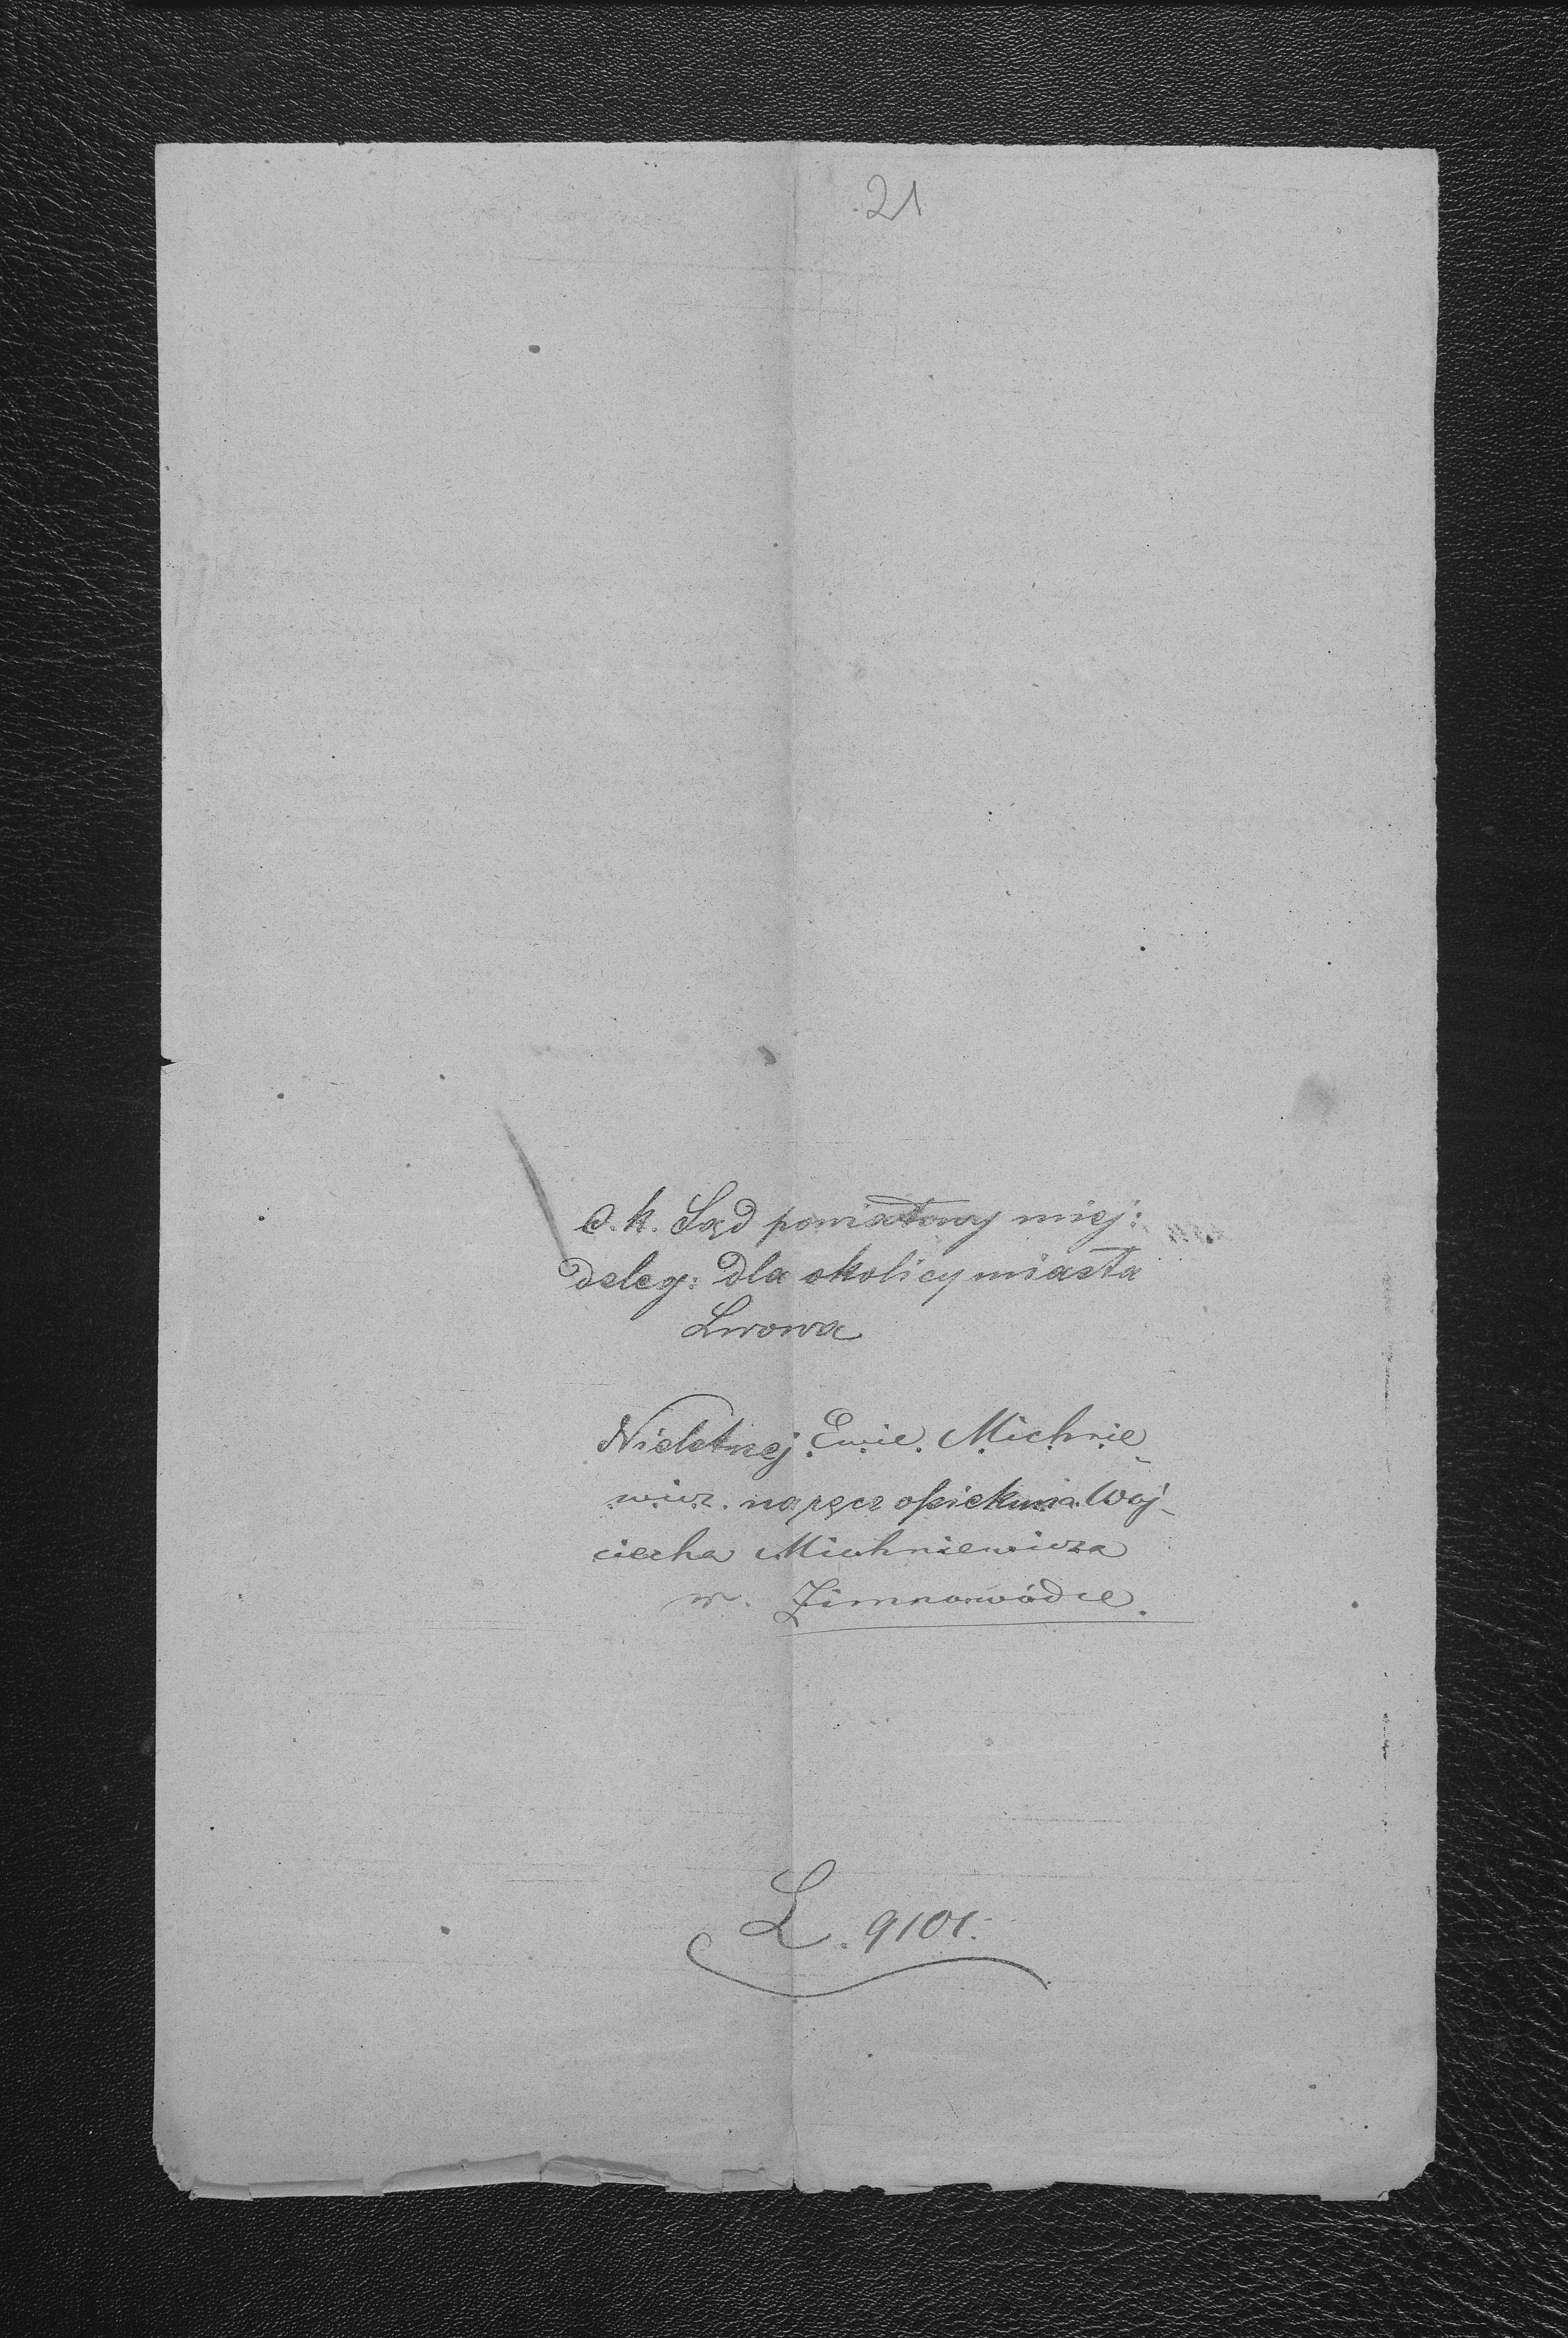 21
C. k. Sąd powiatowy miej:
deleg: dla okolicy miasta
Lwowa
Nieletniej Ewie Michnie
wicz na ręce opiekuna Woj-
ciecha Michniewicza
w. Zimnowódce.
L. 9101.